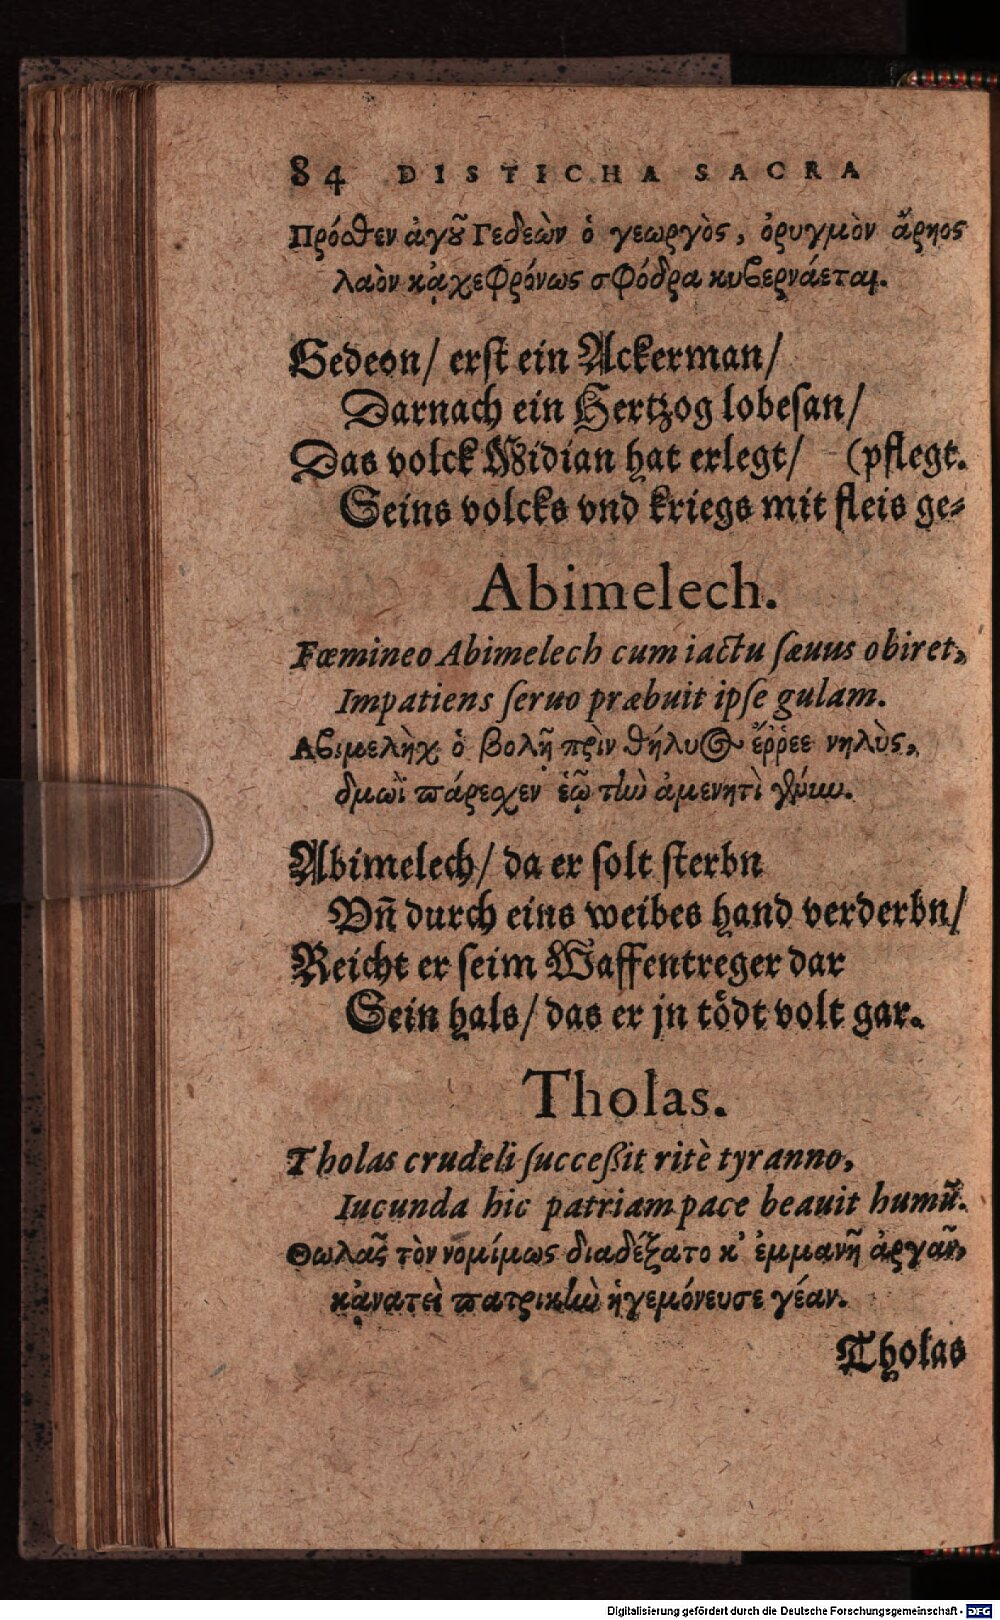 84 DISTICHA SACRA
Πρόσθεν ἀγοῦ Γεδεὼν ὁ γεωργὸς, ὀρυγμὸν ἄρηος
λαὸν κἀχεφρόνως σφόδρα κυβερνάεται.
Gedeon/ erſt ein Ackerman/
Darnach ein Hertzog lobeſan/
Das volck Midian hat erlegt/ (pflegt.
Seins volcks vnd kriegs mit fleis ge⸗
Abimelech.
Fœmineo Abimelech cum iactu ſæuus obiret,
Impatiens ſeruo præbuit ipſe gulam.
Αβιμελὴχ ὁ βολῇ πρὶν θήλυος ἔῤῥεε νηλὺς,
δμωῒ πάρεχεν ἑῷ τὴν ἀμενητὶ
Abimelech/ da er ſolt ſterbn
Vñ durch eins weibes hand verderbn/
Reicht er ſeim Waffentreger dar
Sein hals/ das er jn tödt volt gar.
Tholas.
Tholas crudeli ſucceßit ritè tyranno,
Iucunda hic patriam pace beauit humū.
Θωλᾶς τὸν νομίμως διαδέξατο κ' ἐμμανῆ ἀργᾶν,
κἀνατεὶ πατρικὴν ἡγεμόνευσε γέαν.
Tholas
Digitalisierung gefördert durch die Deutsche Forschungsgemeinschaft - DFG